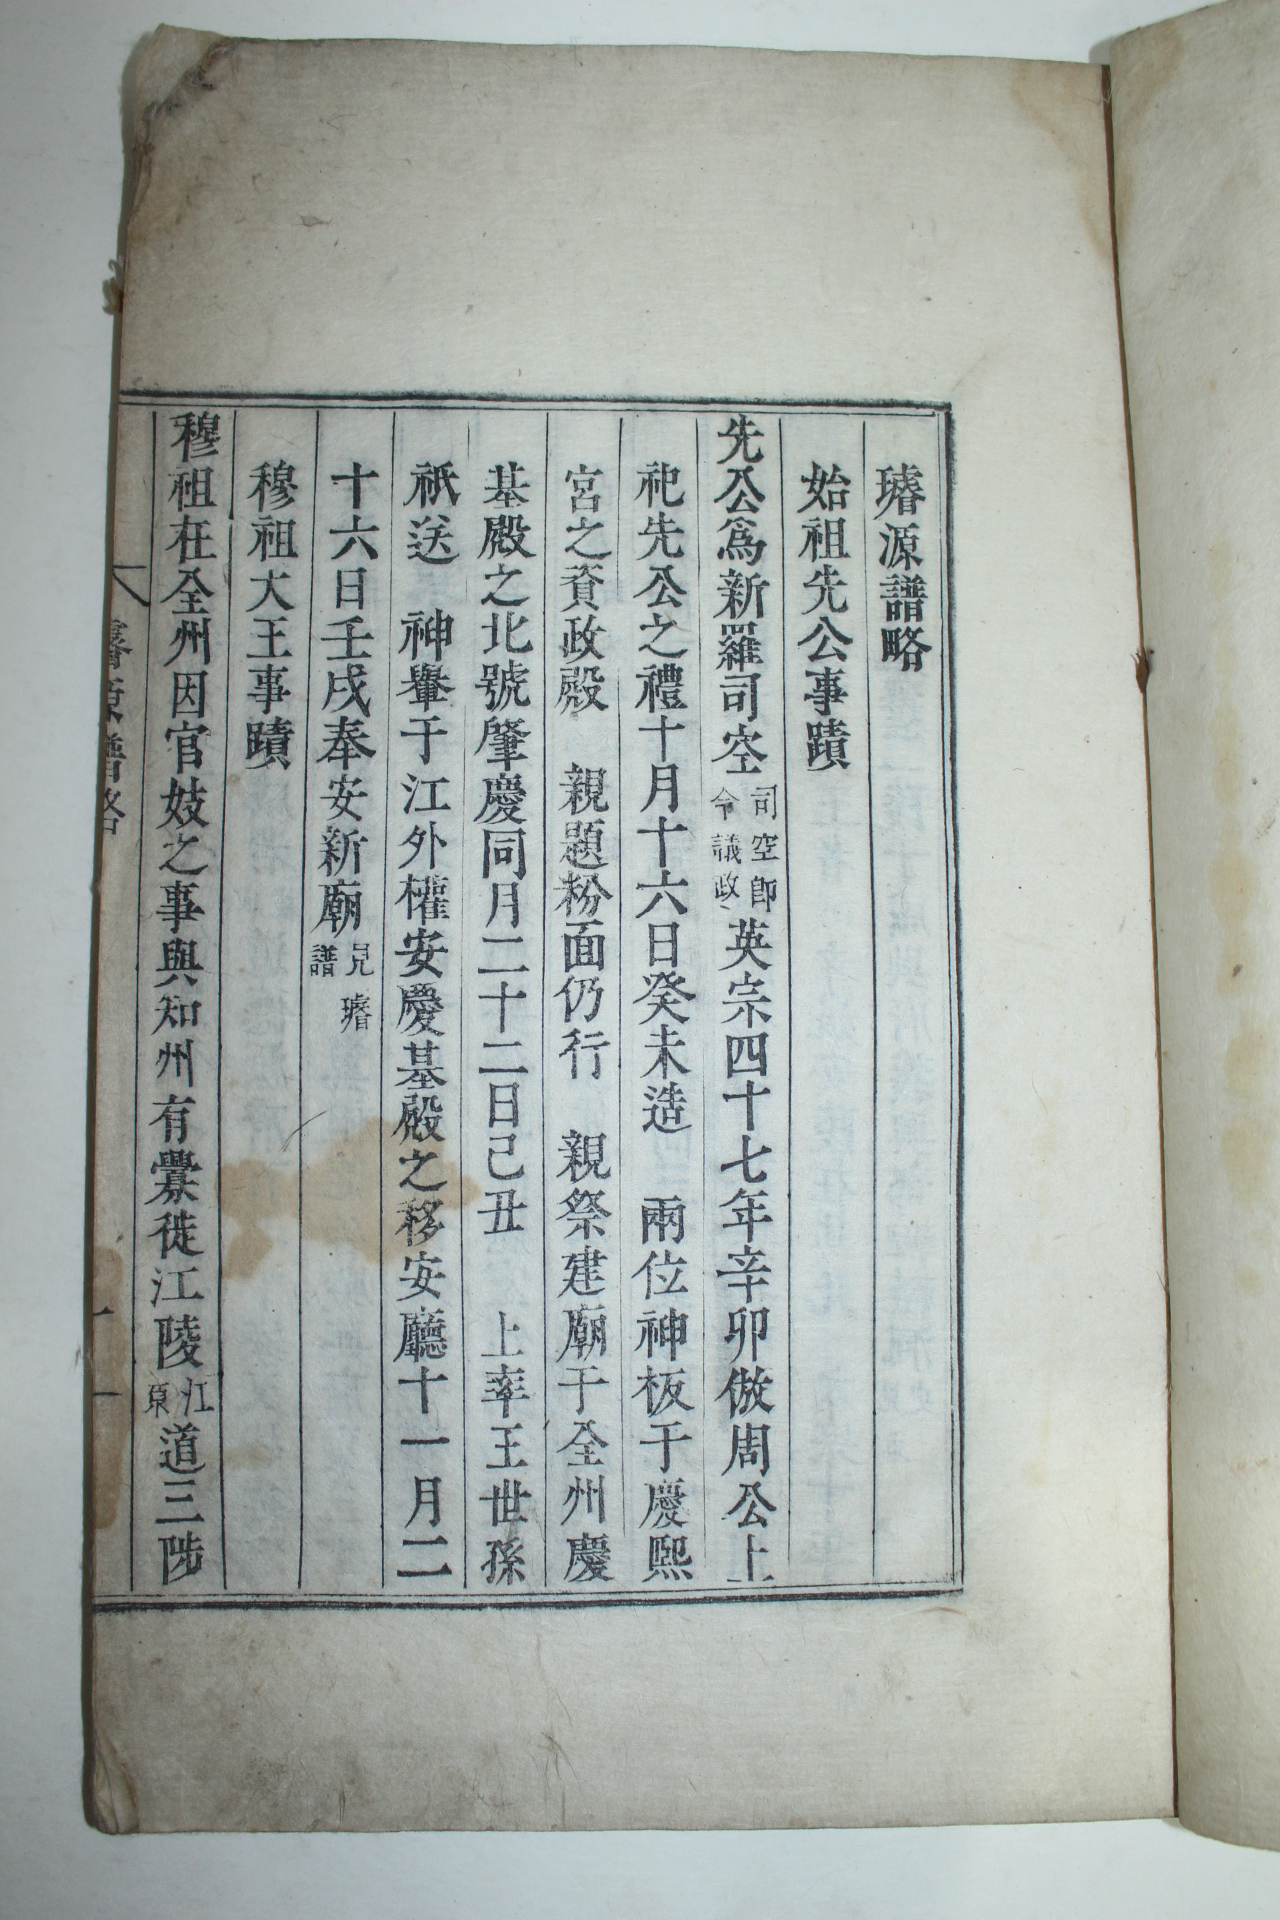 璿源譜略
始祖先公事蹟
先公爲新羅司空司空卽今議政英宗四十七年辛卯倣周公上
祀先公之禮十月十六日癸未造 兩位神板于慶熙
宮之資政殿 親題粉面仍行 親祭建廟于全州慶
基殿之北號肇慶同月二十二日己丑 上率王世孫
祗送 神轝于江外權安慶基殿之移安廳十一月二
十六日壬戌奉安新廟見璿譜
穆祖大王事蹟
穆祖在全州因官妓之事與知州有釁徙江陵江原道三陟
璿源譜略
一